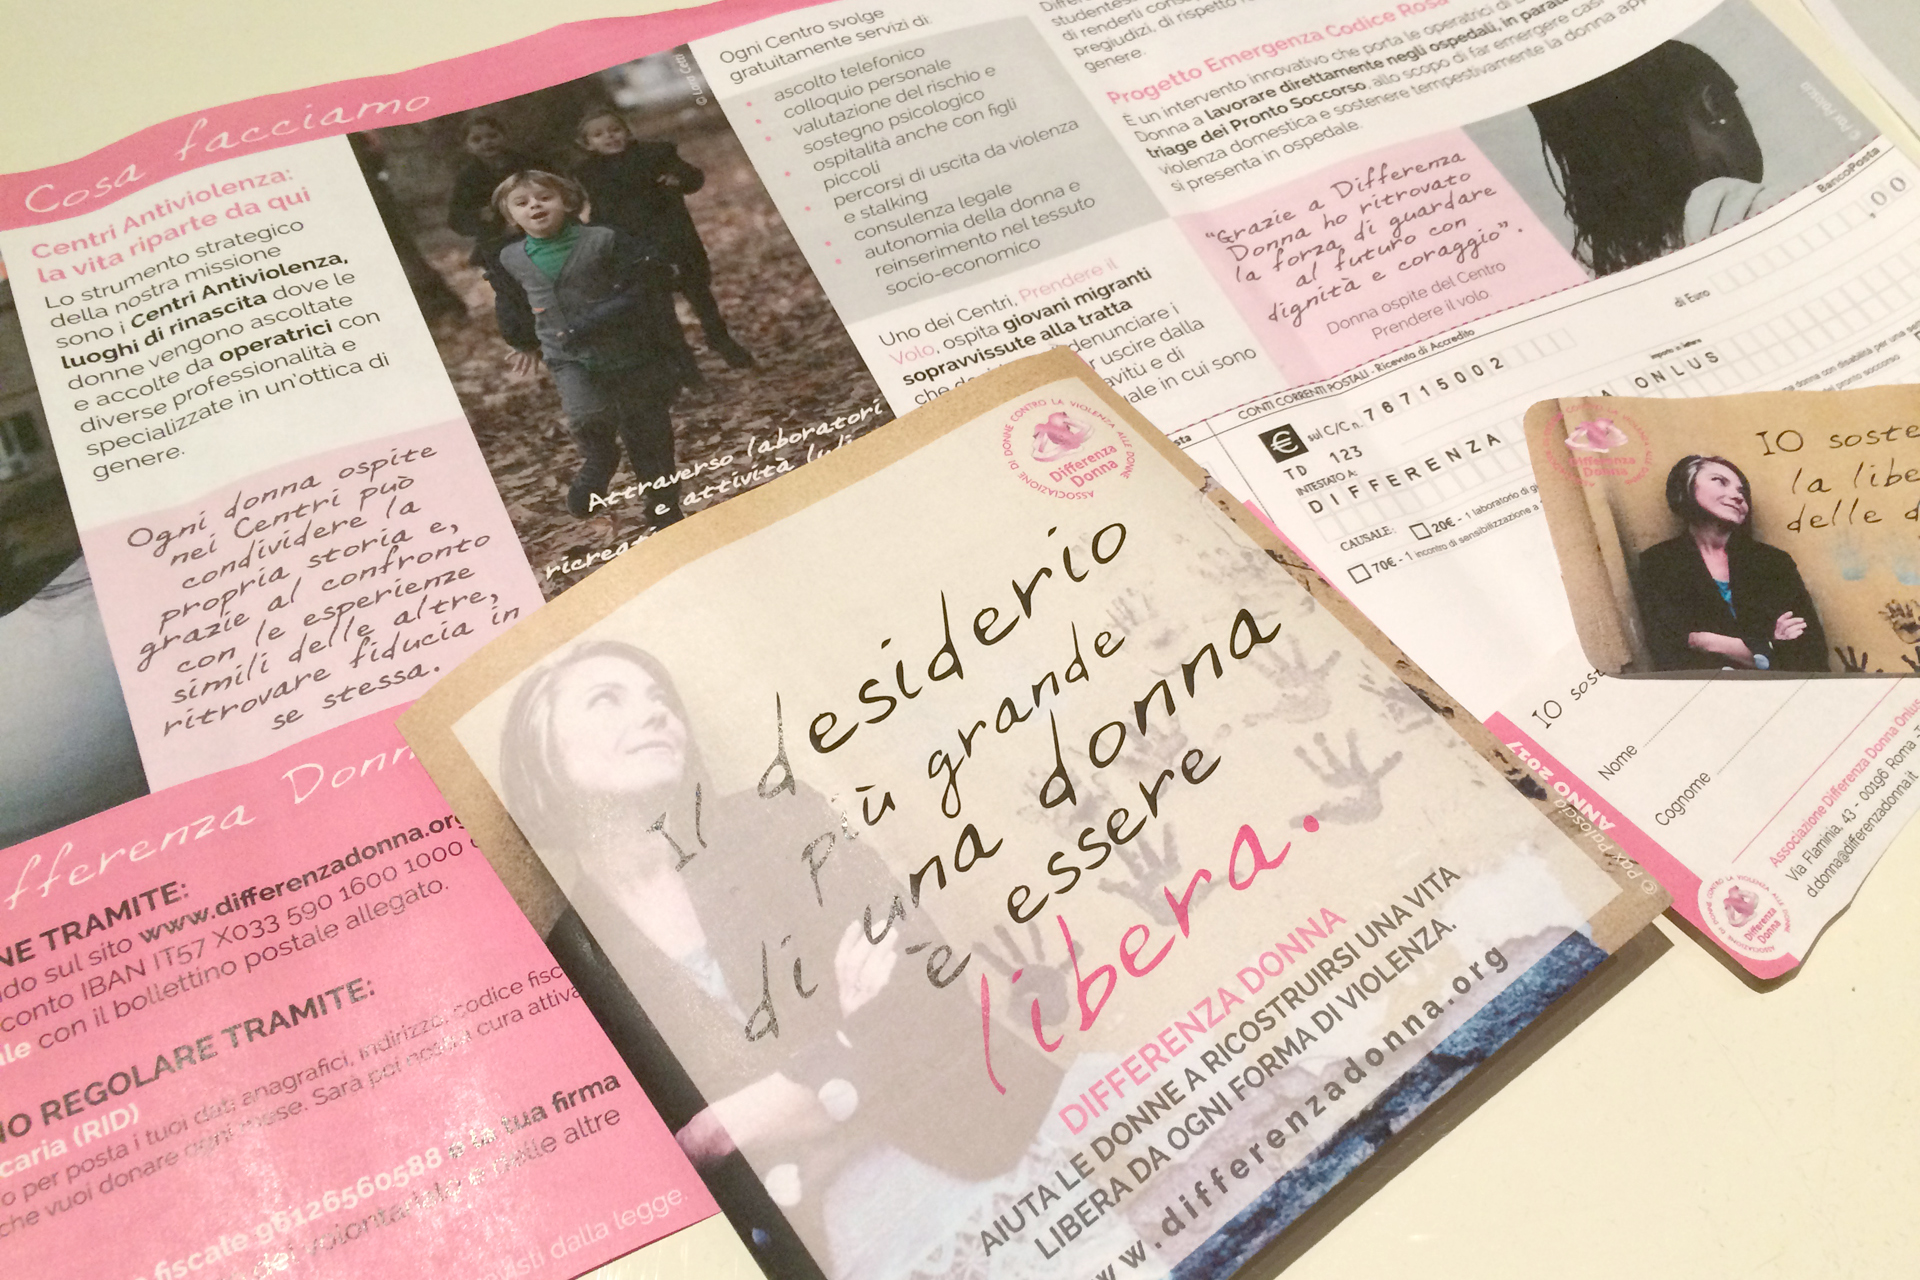 Cosa facciamo
Centri Antiviolenza:
la vita riparte da qui
Lo strumento strategico
della nostra missione
sono i Centri Antiviolenza,
luoghi di rinascita dove le
donne vengono ascoltate
e accolte da operatrici con
diverse professionalità e
specializzate in un'ottica di
genere.
Ogni donna ospite
nei Centri può
condividere la
propria storia e,
grazie al confronto
con le esperienze
simili delle altre,
ritrovare fiducia in
se stessa.
Attraverso laboratori
e attività
Ogni Centro svolge
gratuitamente servizi di:
ascolto telefonico
colloquio personale
valutazione del rischio e
sostegno psicologico
ospitalità anche con figli
piccoli
percorsi di uscita da violenza
e stalking
consulenza legale
autonomia della donna e
reinserimento nel tessuto
socio-economico
Uno dei Centri, Prendere il
Volo, ospita giovani migranti
sopravvissute alla tratta
denunciare i
uscire dalla
e di
in cui sono
di renderli
pregiudizi, di rispetto
genere.
Progetto Emergenza Codice Rosa
È un intervento innovativo che porta le operatrici di
Donna a lavorare direttamente negli ospedali, in
triage dei Pronto Soccorso, allo scopo di far emergere casi
violenza domestica e sostenere tempestivamente la donna
si presenta in ospedale.
"Grazie a Differenza
Donna ho ritrovato
la forza di guardare
al futuro con
dignità e coraggio".
Donna ospite del Centro
Prendere il volo
CONTI CORRENTI POSTALI - Ricevuta di Accredito
BancoPosta
€ sul C/C n. 76715002
di Euro ,00
TD 123
importo in lettere
INTESTATO A:
DIFFERENZA ONLUS
CAUSALE: 20€ - 1 laboratorio di
70€ - 1 incontro di sensibilizzazione a
IO
Nome
Cognome
Associazione Differenza Donna Onlus
Via Flaminia, 43 - 00196 Roma
d.donna@differenzadonna.it
ANNO 2017
ASSOCIAZIONE DI DONNE CONTRO LA VIOLENZA ALLE DONNE
Differenza
Donna
IO
la
delle
Differenza
Donna
ASSOCIAZIONE DI DONNE CONTRO LA VIOLENZA ALLE DONNE
Differenza
Donna
Il desiderio
più grande
di una donna
è essere
libera.
DIFFERENZA DONNA
AIUTA LE DONNE A RICOSTRUIRSI UNA VITA
LIBERA DA OGNI FORMA DI VIOLENZA.
www.differenzadonna.org
TRAMITE:
sul sito www.differenzadonna.org
conto IBAN IT57 X033 590 1600 1000
con il bollettino postale allegato.
REGOLARE TRAMITE:
(RID)
per posta i tuoi dati anagrafici, indirizzo, codice
che vuoi donare ogni mese. Sarà poi nostra cura
fiscale 96126560588 e la tua firma
del volontariato e nelle altre
dalla legge.